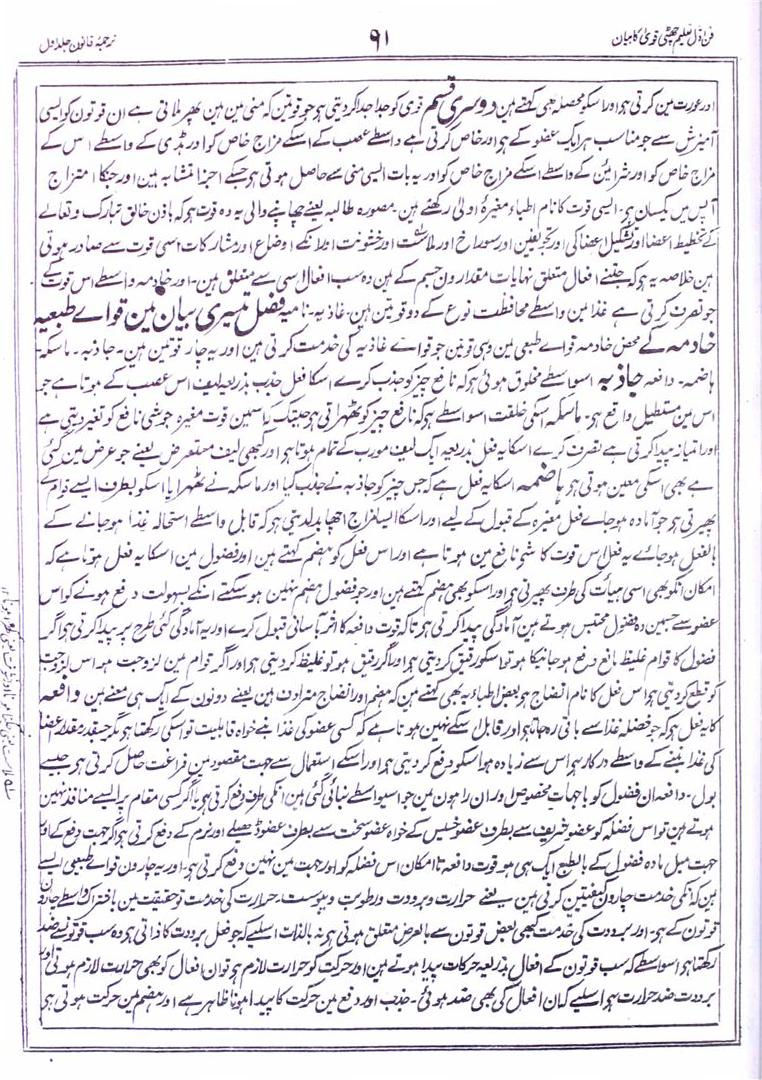 فن اول تعلیم چھٹی قویٰ کا بیان
۹۱
ترجمۂ قانون جلد اول
اور عورت مین کرتی ہو اور اسکو محصلہ بھی کہتے ہین دوسری قسم قوی کو جدا جدا کر دیتی ہو جو قوتین کہ منی مین ہین پھر ملاتی ہے ان قوتون کو ایسی
آمیزش سے جو مناسب ہر ایک عضو کے ہو اور خاص کرتی ہے واسطے عصب کے اسکے مزاج خاص کو اور ہڈی کے واسطے اس کے
مزاج خاص کو اور شرائین کے واسطے اسکے مزاج خاص کو اور یہ بات ایسی منی سے حاصل ہوتی ہو جسکے اجزا متشابہ ہین اور جنکا امتزاج
آپس مین یکسان ہو۔ ایسی قوت کا نام اطباء مغیرۂ اولیٰ رکھتے ہین۔ مصورہ طالبہ یعنے چھاپنے والی یہ وہ قوت ہو کہ باذن خالق تبارک وتعالے
کے تخطیط اعضا اور تشکیل اعضا کی اور تجویفین اور سوراخ اور ملاست اور خشونت اور انکے اوضاع اور مشارکات اسی قوت سے صادر ہوتی
ہین خلاصہ یہ ہو کہ جتنے افعال متعلق نہایات مقدارون جسم کے ہین وہ سب افعال اسی سے متعلق ہین۔ اور خادمہ واسطے اس قوت کے
جو تصرف کرتی ہے غذا مین واسطے محافظت نوع کے دو قوتین ہین۔ غاذیہ۔ نامیہ فصل تیسری بیان مین قواے طبعیہ
خادمہ کے محض خادمہ قواے طبعی مین وہی قوتین جو قواے غاذیہ کی خدمت کرتی ہین اور یہ چار قوتین ہین۔ جاذبہ۔ ماسکہ۔
ہاضمہ۔ دافعہ جاذبہ اسواسطے مخلوق ہوئی ہو کہ نافع چیز کو جذب کرے اسکا فعل جذب بذریعہ لیف اس عصب کے ہوتا ہے جو
اس مین مستطیل واقع ہو۔ ماسکہ اسکی خلقت اسواسطے ہو کہ نافع چیز کو ٹھہراتی ہو جبتک کہ اسمین قوت مغیرہ جو شی نافع کو تغیر دیتی ہے
اور امتیاز پیدا کرتی ہے تصرف کرے اسکا یہ فعل بذریعہ ایک لیف مورب کے تمام ہوتا ہو اور کبھی لیف مستعرض یعنے جو عرض مین گئی
ہے بھی اسکی معین ہوتی ہو ہاضمہ اسکا یہ فعل ہے کہ جس چیز کو جاذبہ نے جذب کیا اور ماسکہ نے ٹھہرایا اسکو بطرف ایسے قوام کے
پھیرتی ہو جو آمادہ ہو جاے فعل مغیرہ کے قبول کے لیے اور اسکا ایسا مزاج اچھا بدل دیتی ہو کہ قابل واسطے استحالہ غذا ہو جانے کے
بالفعل ہو جاے یہ فعل اس قوت کا شی نافع مین ہوتا ہے اور اس فعل کو ہضم کہتے ہین اور فضول مین اسکا یہ فعل ہوتا ہے کہ
امکان انکو بھی اسی ہیأت کی طرف پھیرتی ہو اور اسکو بھی ہضم کہتے ہین اور جو فضول ہضم نہین ہو سکتے انکے بسہولت دفع ہونے کو اس
عضو سے جسمین وہ فضول محتبس ہوتے ہین آمادگی پیدا کرتی ہو تاکہ قوت دافعہ کا اثر بآسانی قبول کرے اور یہ آمادگی کئی طرح پر پیدا کرتی ہو اگر
فضول کا قوام غلیظ مانع دفع ہو جانیکا ہو تو اسکو رقیق کر دیتی ہو اور اگر رقیق ہو تو غلیظ کر دیتی ہو اور اگر قوام مین لزوجت ہو اس لزوجت
کو قطع کر دیتی ہو اس فعل کا نام انضاج ہو بعض اطباء یہ بھی کہتے ہین کہ ہضم اور انضاج مترادف ہین یعنے دونون کے ایک ہی معنے ہین دافعہ
کا یہ فعل ہو کہ جو فضلہ غذا سے باقی رہ جاتا ہو اور قابل اسکے نہین ہوتا ہے کہ کسی عضو کی غذا بنے خواہ قابلیت تو اسکی رکھتا ہو مگر جسقدر مقدار اعضا
کی غذا بننے کے واسطے درکار ہو اس سے زیادہ ہو اسکو دفع کر دیتی ہو اور اسکے استعمال سے جہت مقصود مین فراغت حاصل کرتی ہو جیسے
بول۔ دافعہ ان فضول کو باجہات مخصوص اور ان راہون مین جو اسیواسطے بنائی گئی ہین انکی طرف دفع کرتی ہو یا اگر کسی مقام پر ایسے منافذ نہین
ہوتے ہین تو اس فضلہ کو عضو شریف سے بطرف عضو خسیس کے خواہ عضو سخت سے بطرف عضو ڈھیلے اور نرم کے دفع کرتی ہو اگر جہت دفع کے اور
جہت میل مادہ فضول کے بالطبع ایک ہی ہو قوت دافعہ تا امکان اس فضلہ کو اور جہت مین نہین دفع کرتی ہو۔ اور یہ چارون قواے طبیعی ایسے
ہین کہ انکی خدمت چارون کیفیتین کرتی ہین یعنے حرارت و برودت و رطوبت و یبوست۔ حرارت کی خدمت تو حقیقت مین باشتراک واسطے چارون
قوتون کے ہو۔ اور برودت کی خدمت کبھی بعض قوتون سے بالعرض متعلق ہوتی ہو نہ بالذات اسلیے کہ جو فعل برودت کا ذاتی ہو وہ سب قوتون سے ضد
رکھتا ہو اسواسطے کہ سب قوتون کے افعال بذریعہ حرکات پیدا ہوتے ہین اور حرکت کو حرارت لازم ہو تو ان افعال کو بھی حرارت لازم ہوتی اور
برودت ضد حرارت ہو اسلیے کہ ان افعال کی بھی ضد ہوئی۔ جذب اور دفع مین حرکت کا پیدا ہونا ظاہر ہے اور ہضم مین حرکت ہوتی ہو